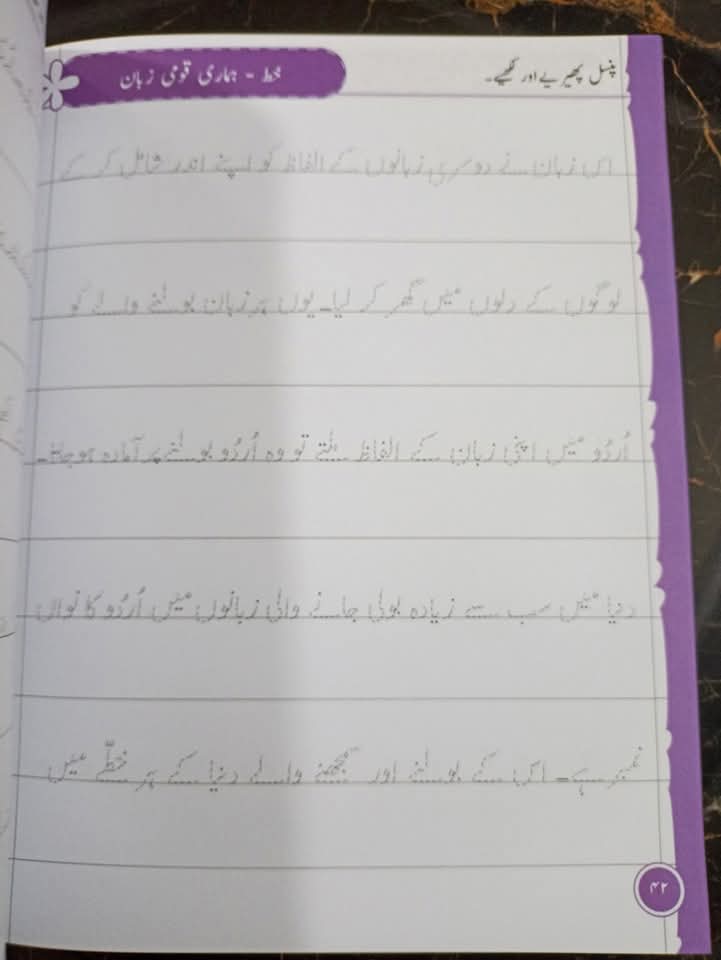 پنسل پھیریے اور لکھیے۔
خط - ہماری قومی زبان
اس زبان نے دوسری زبانوں کے الفاظ کو اپنے اندر شامل کر کے
لوگوں کے دلوں میں گھر کر لیا۔ یوں ہر زبان بولنے والے کو
اُردُو میں اپنی زبان کے الفاظ ملتے تو وہ اُردُو بولنے پر آمادہ ہوجاتا۔
دنیا میں سب سے زیادہ بولی جانے والی زبانوں میں اُردُو کا نواں
نمبر ہے۔ اس کے بولنے اور سمجھنے والے دنیا کے ہر خطّے میں
۴۲